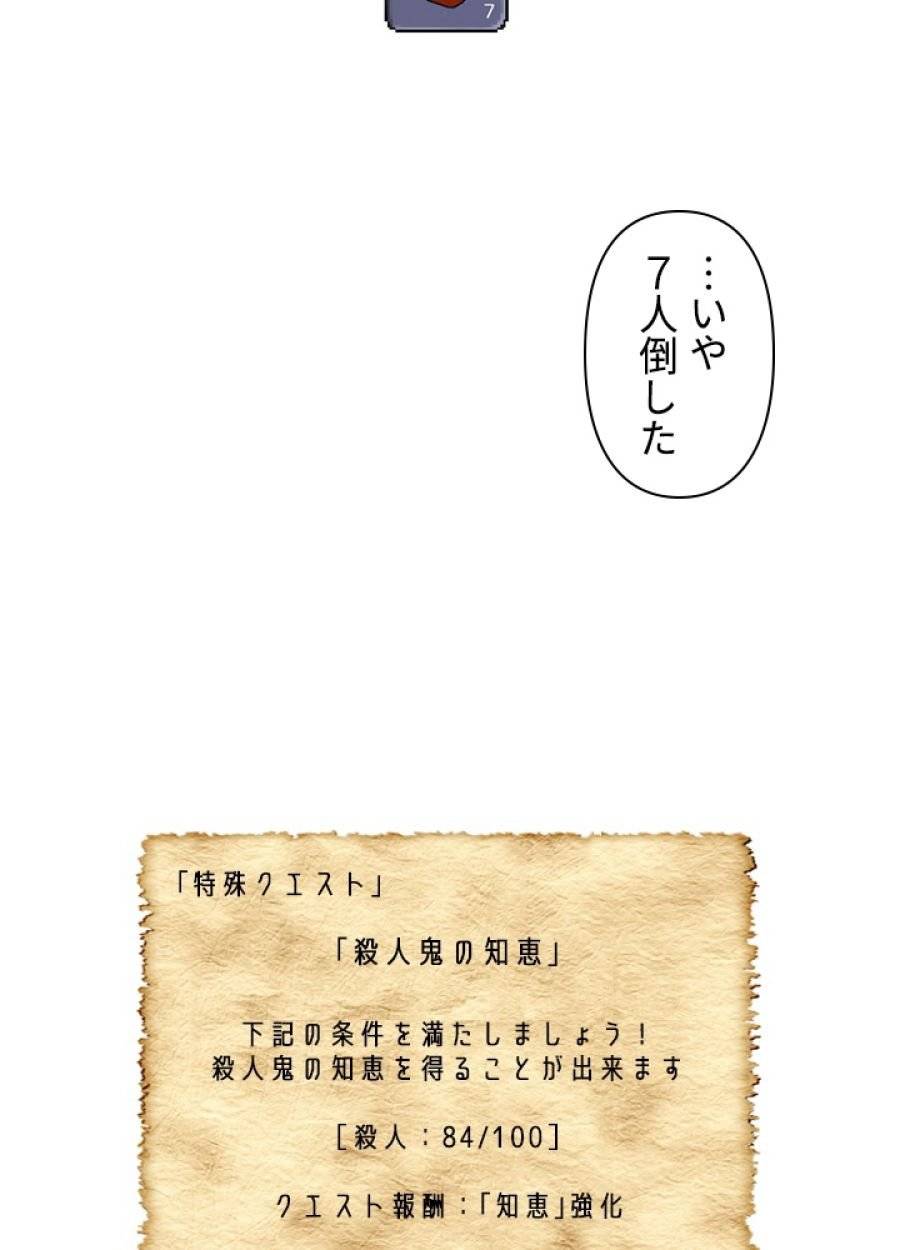 7
…いや
7人倒した
「特殊クエスト」
「殺人鬼の知恵」
下記の条件を満たしましょう!
殺人鬼の知恵を得ることが出来ます
[殺人:84/100]
クエスト報酬:「知恵」強化